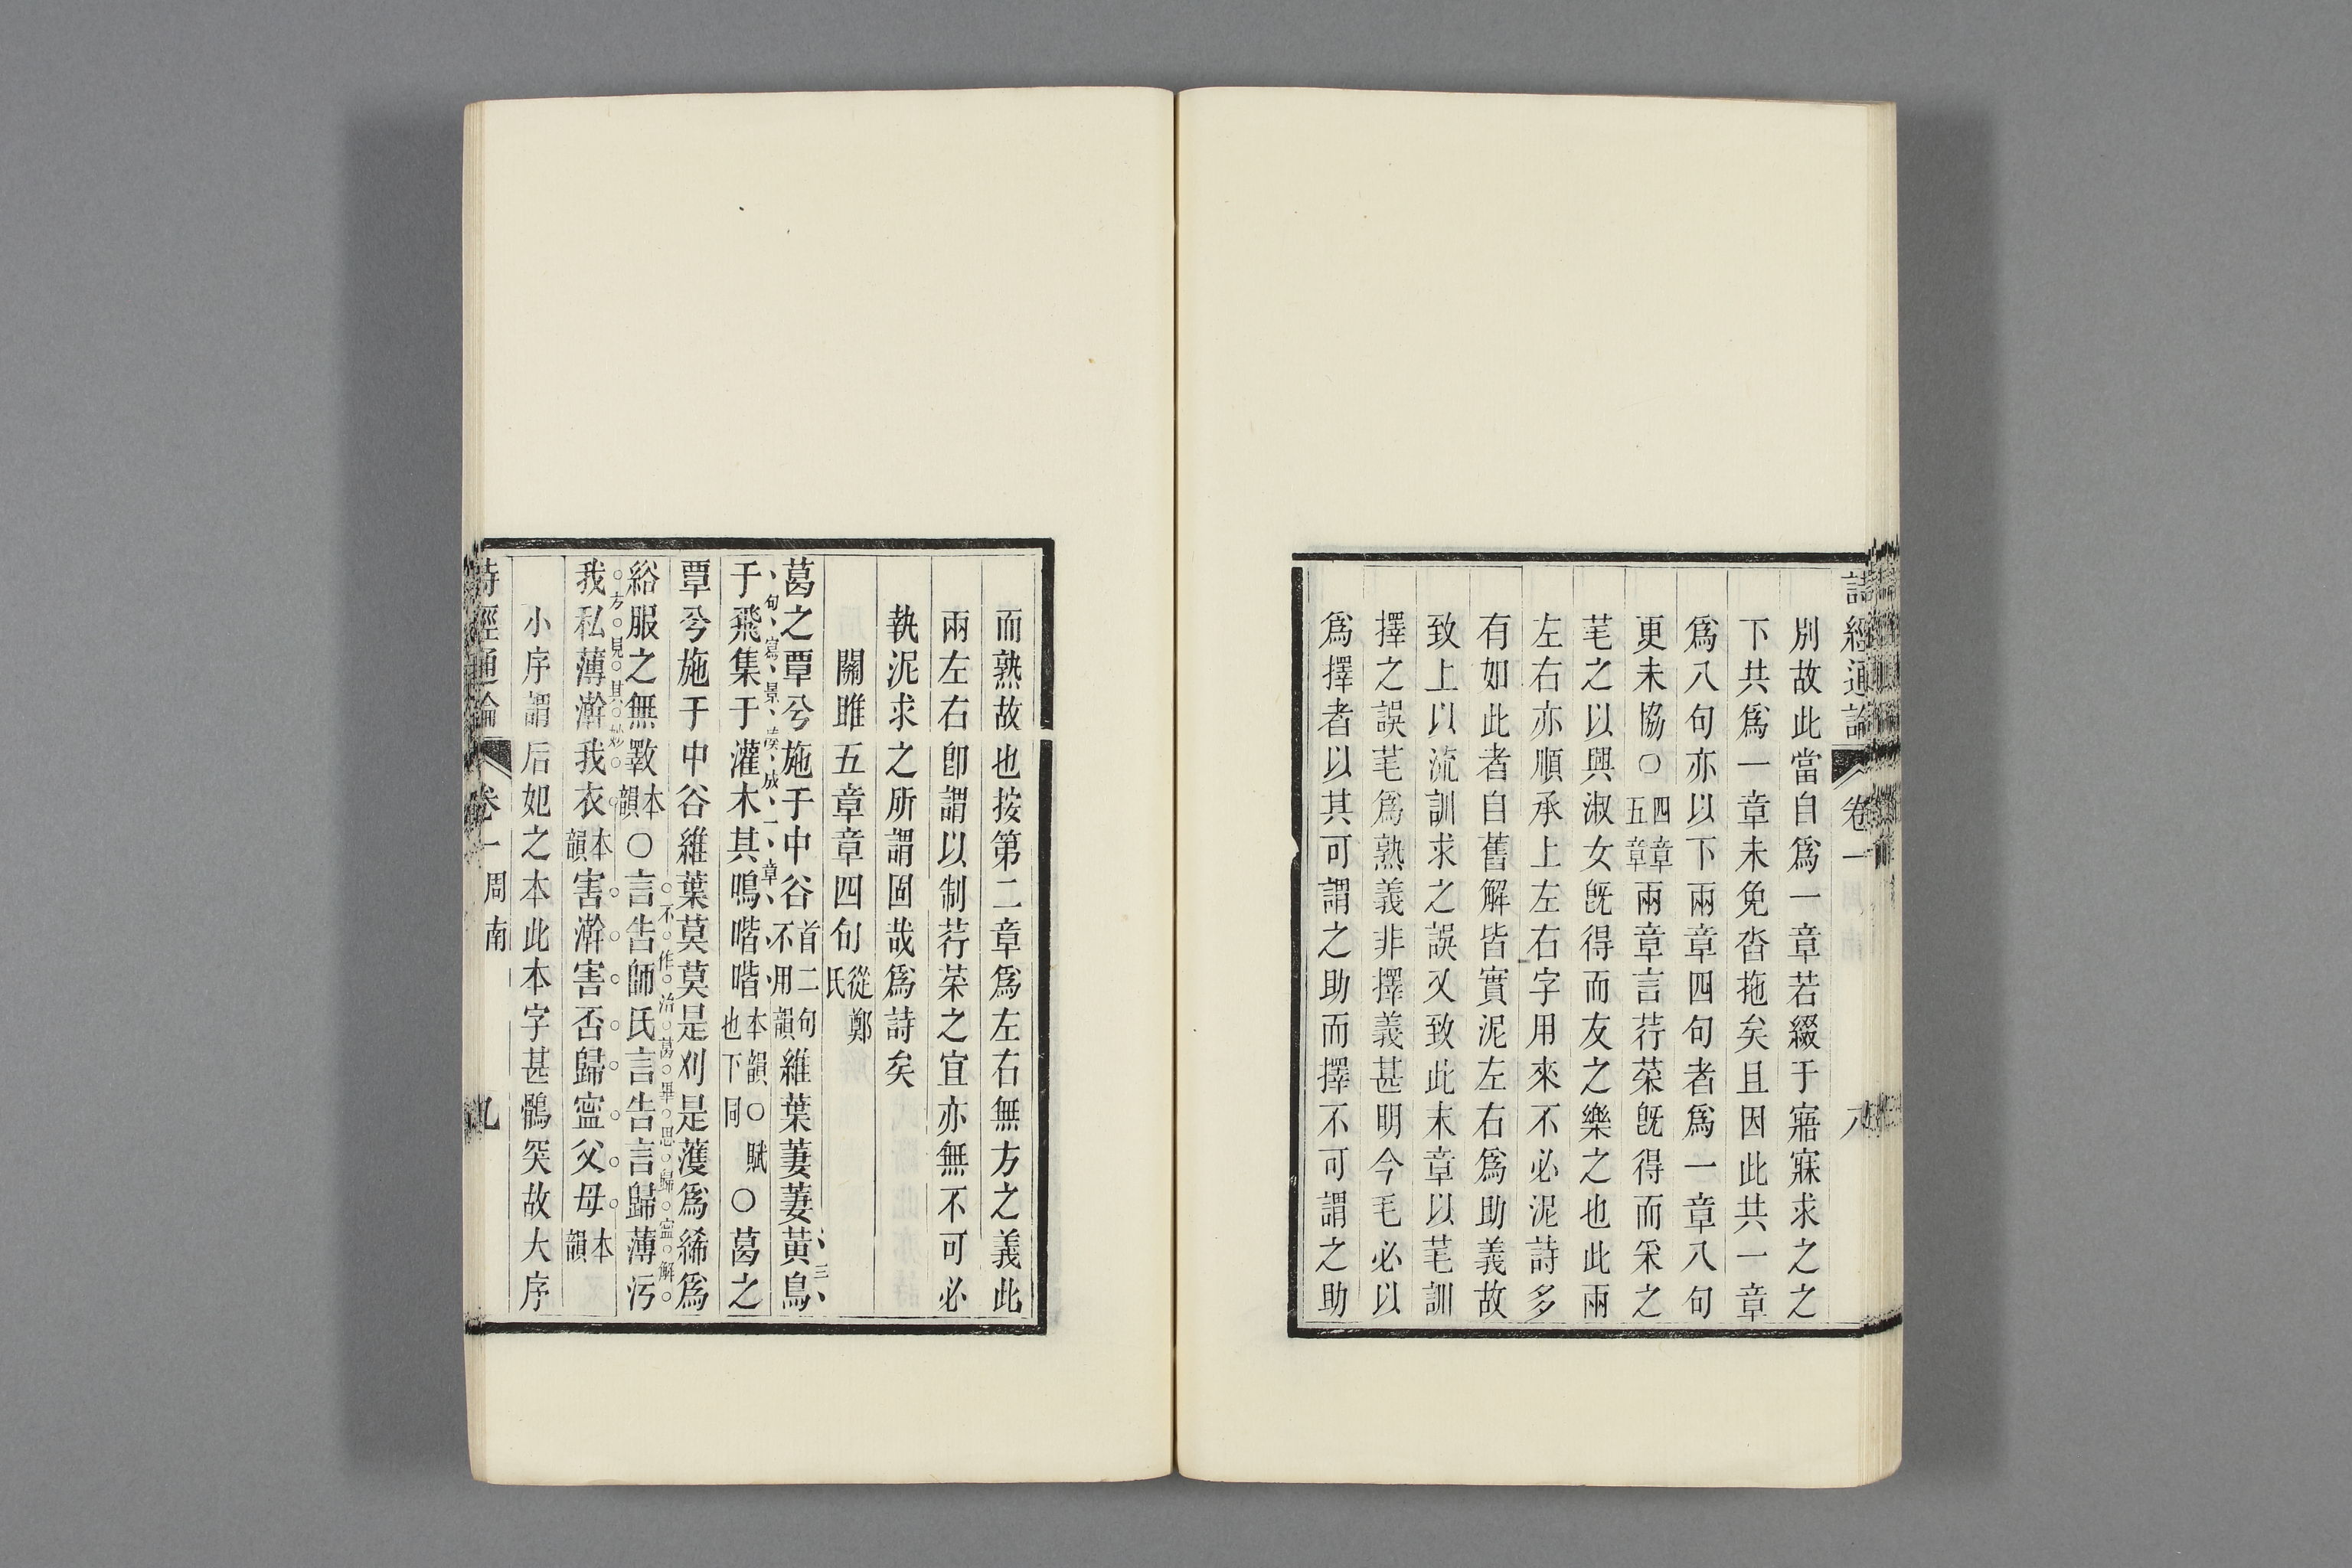 詩經通論 卷一 八
別故此當自爲一章若綴于寤寐求之之
下共爲一章未免沓拖矣且因此共一章
爲八句亦以下兩章四句者爲一章八句
更未協○四章五章兩章言荇菜旣得而采之
芼之以興淑女旣得而友之樂之也此兩
左右亦順承上左右字用來不必泥詩多
有如此者自舊解皆實泥左右爲助義故
致上以流訓求之誤又致此末章以芼訓
擇之誤芼爲熟義非擇義甚明今毛必以
爲擇者以其可謂之助而擇不可謂之助
而熟故也按第二章爲左右無方之義此
兩左右卽謂以制荇菜之宜亦無不可必
執泥求之所謂固哉爲詩矣
關雎五章章四句從鄭氏
葛之覃兮施于中谷首二句不用韻維葉萋萋黃鳥
三句寫景湊成一章
于飛集于灌木其鳴喈喈本韻也下同○賦○葛之
覃兮施于中谷維葉莫莫是刈是濩爲絺爲
不作治葛畢思歸寧解
綌服之無斁本韻○言告師氏言告言歸薄污
方見其妙
我私薄澣我衣本韻害澣害否歸寧父母本韻
小序謂后妃之本此本字甚鶻突故大序
詩經通論 卷一 周南 九